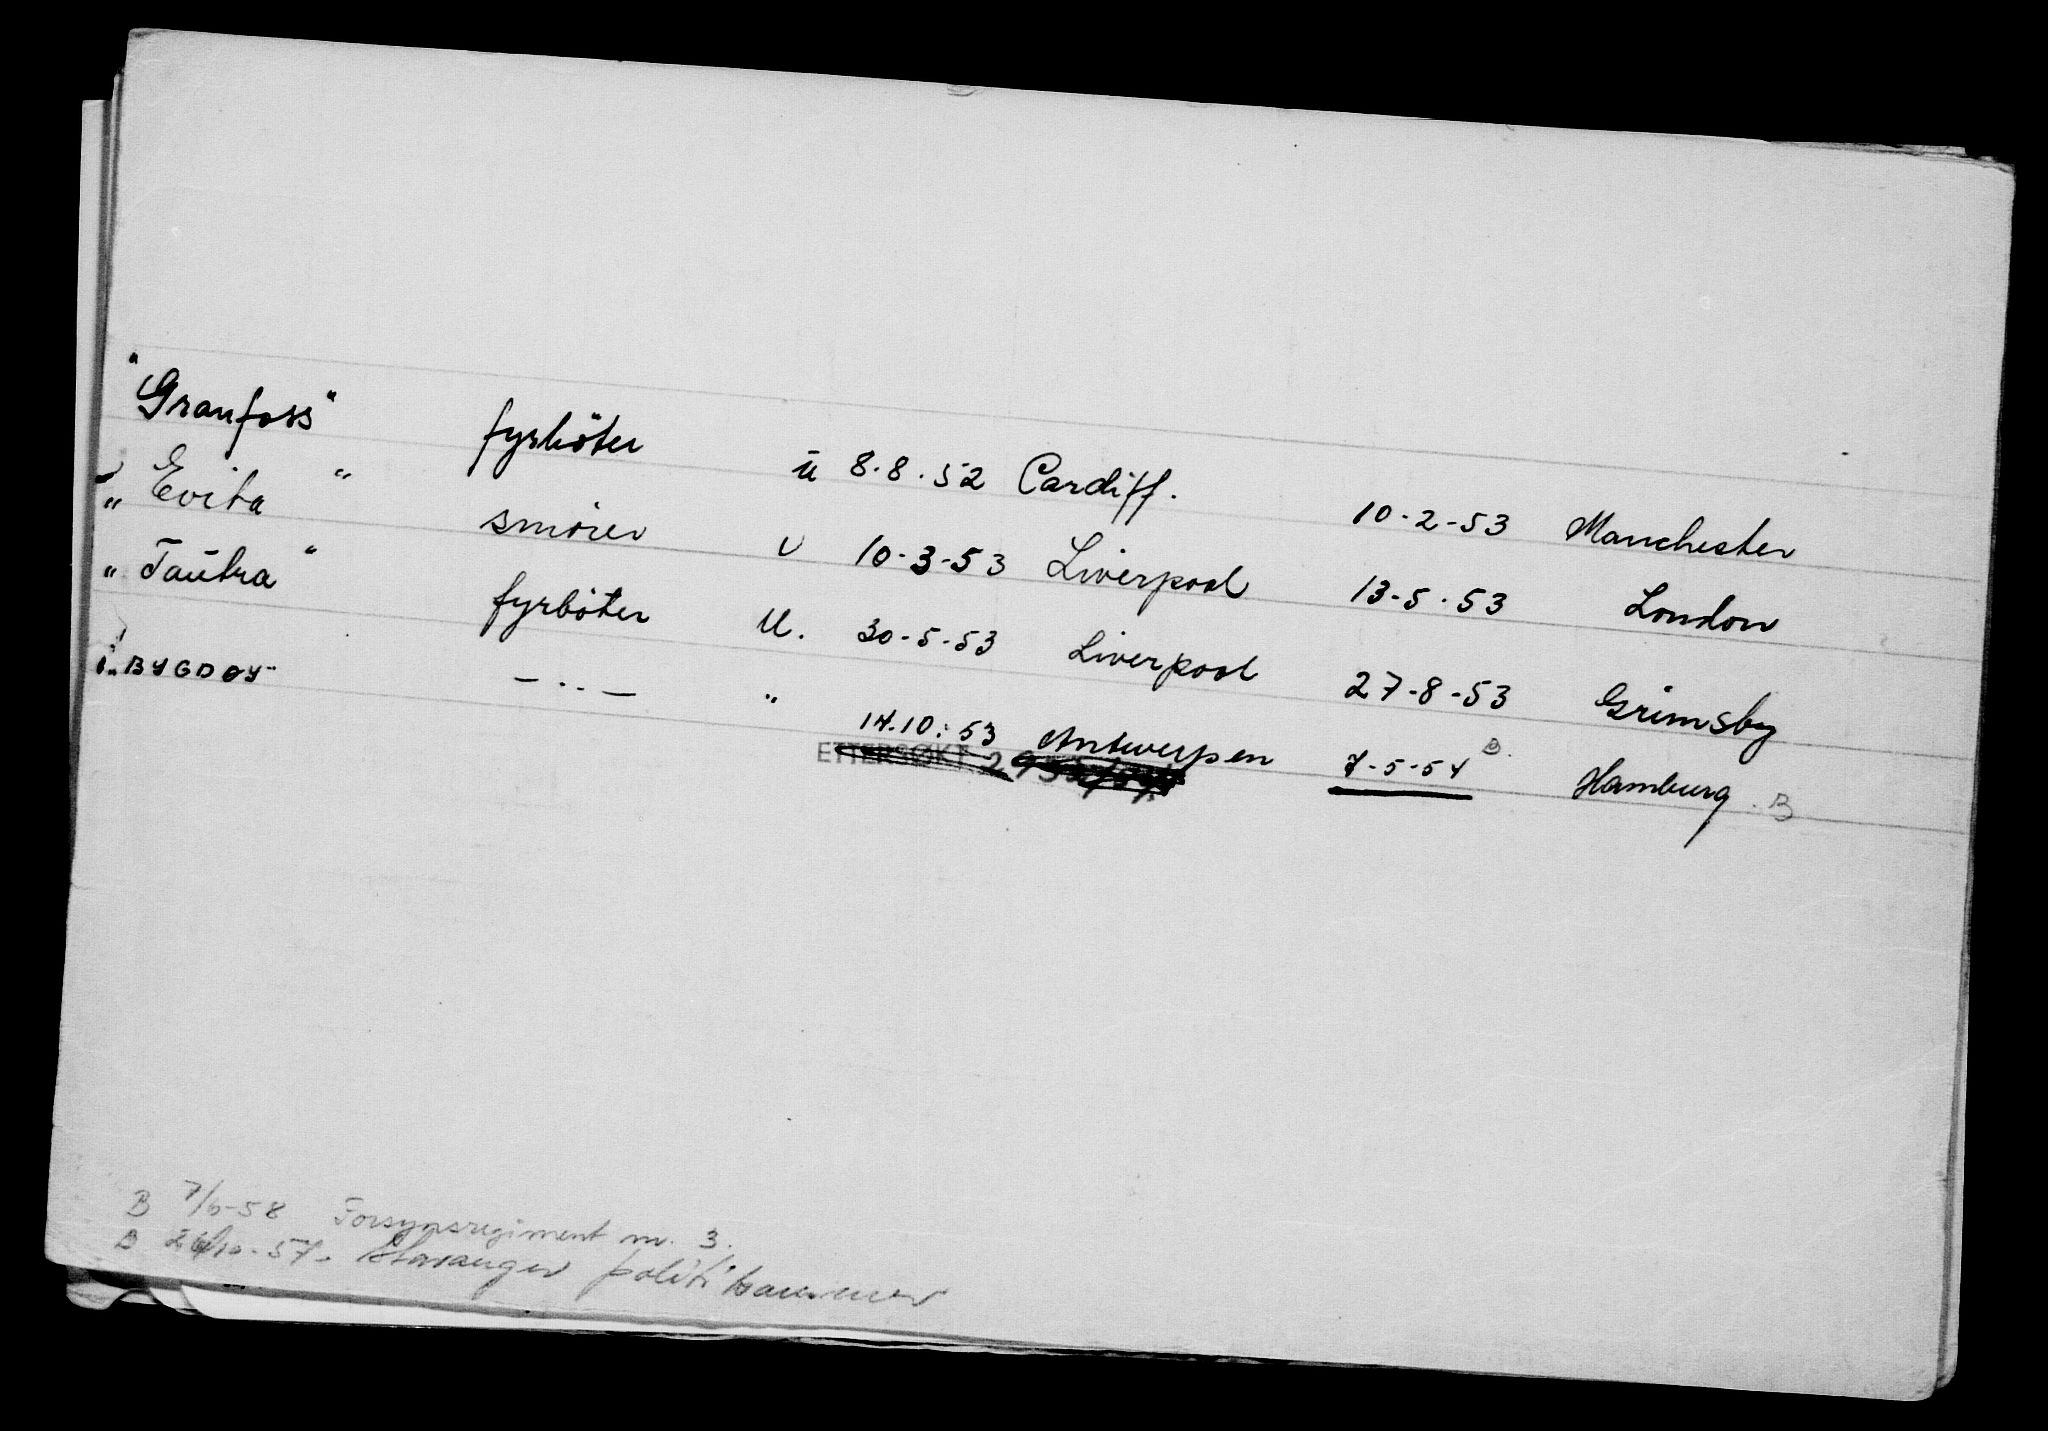 "Granfoss" fyrböter ü 8.8.52 Cardiff. 10-2-53 Manchester
"Evita" smörer U 10-3-53 Liverpool 13-5-53 London
"Tautra" fyrböter U. 30-5-53 Liverpool 27-8-53 Grimsby
"BYGDØY" — .. — " 14.10.53 Antwerpen 7-5-54 B. Hamburg. B
ETTERSØKT
B 7/6-58 Forsynsregiment nr. 3.
B 26/10-57. Stavanger politikammer